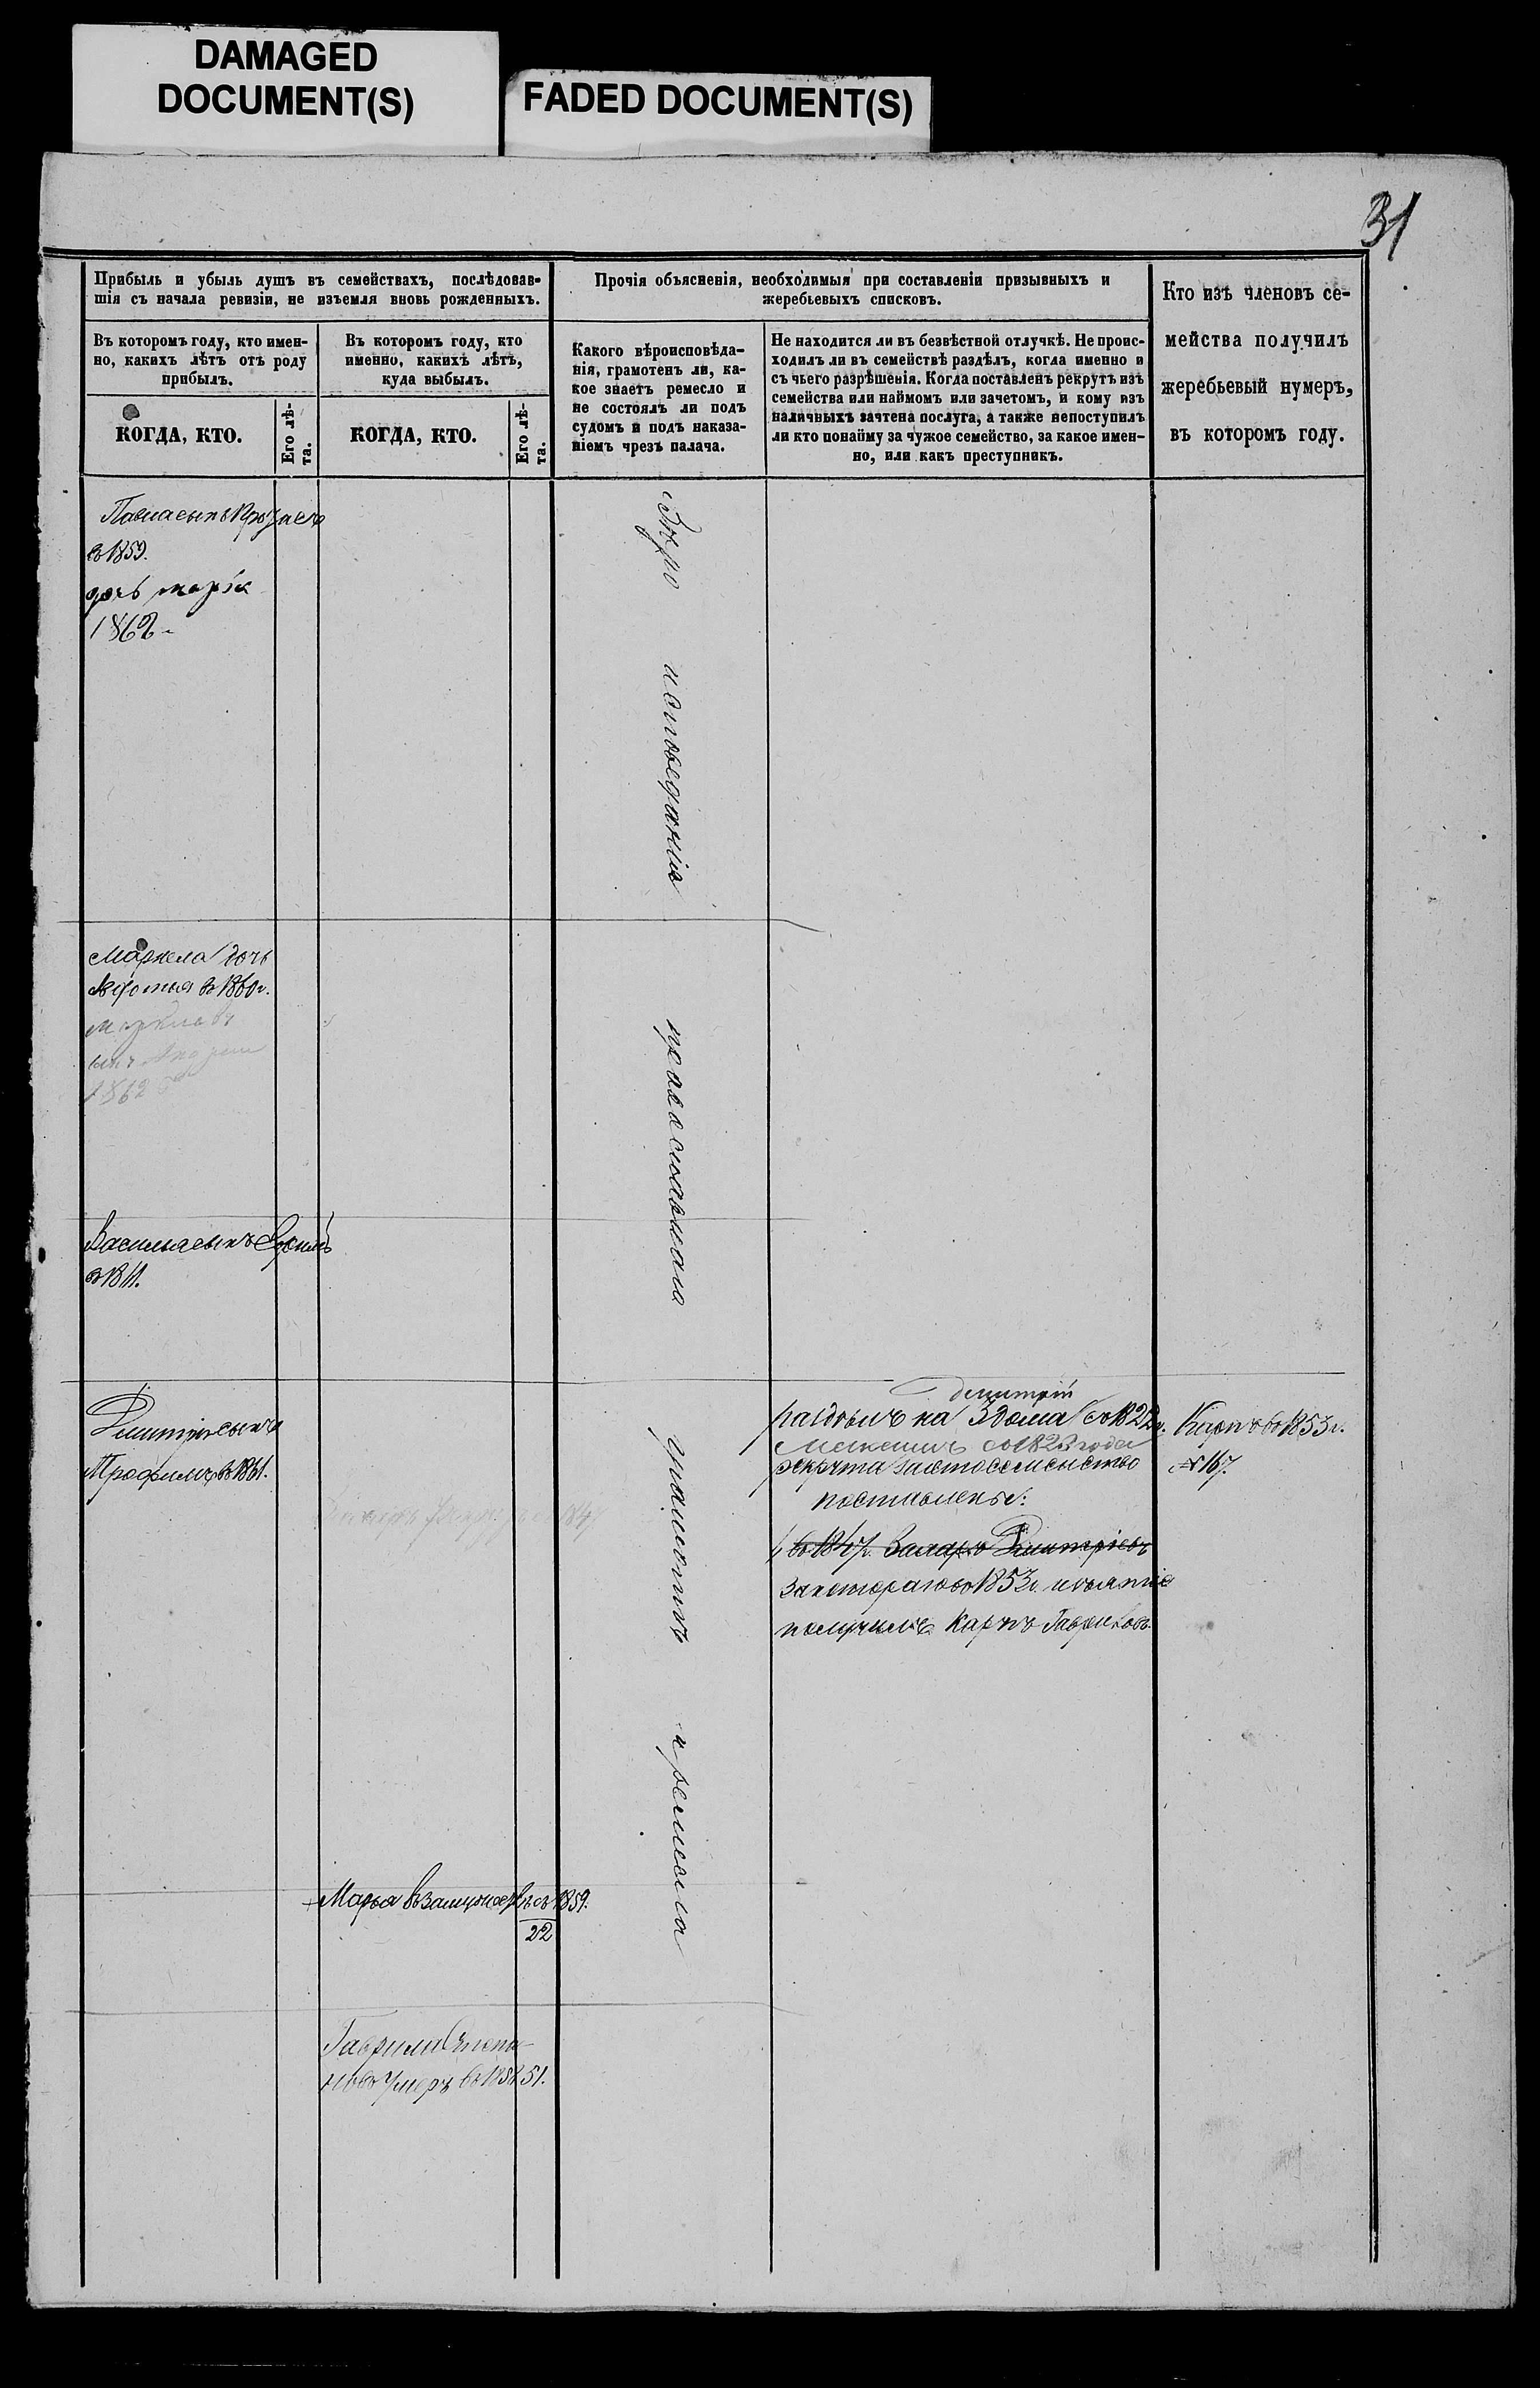 DAMAGED
DOCUMENT(S)
FADED DOCUMENT(S)
31
Прибыль и убыль душъ въ семействахъ, послѣдовав-
шія съ начала ревизіи, не изъемля вновь рожденныхъ.
Прочія объясненія, необходимыя при составленіи призывныхъ и
жеребьевыхъ списковъ.
Кто изъ членовъ се-
мейства получилъ
жеребьевый нумеръ,
въ которомъ году.
Въ которомъ году, кто имен-
но, какихъ лѣтъ отъ роду
прибылъ.
Въ которомъ году, кто
именно, какихъ лѣтъ,
куда выбылъ.
Какого вѣроисповѣда-
нія, грамотенъ ли, ка-
кое знаетъ ремесло и
не состоялъ ли подъ
судомъ и подъ наказа-
ніемъ чрезъ палача.
Не находится ли въ безвѣстной отлучкѣ. Не проис-
ходилъ ли въ семействѣ раздѣлъ, когда именно и
съ чьего разрѣшенія. Когда поставленъ рекрутъ изъ
семейства или наймомъ или зачетомъ, и кому изъ
наличныхъ зачтена послуга, а также непоступилъ
ли кто понайму за чужое семейство, за какое имен-
но, или какъ преступникъ.
КОГДА, КТО.
Его лѣ-
та.
КОГДА, КТО.
Его лѣ-
та.
Павла сынъ
въ 1859.
дочь марія
1862
Маркела дочь
въ 1860 г.
1862
Василья сынъ
Дмитрія сынъ
Трофимъ въ 1861.
Вѣро исповеданія православнаго грамотѣ и ремесла
Дмитрій
на 3 дома въ 1822 г.
1823 года
рекрута
поставлены:
въ 1847 г. Захаръ Дмитріевъ
за котораго въ 1853 г.
получилъ Карпъ Гавриловъ.
Карпъ въ 1853 г.
№ 167.
Марья въ замужестве съ 1859.
22
Гаврила Степа-
новъ умеръ въ 1858 51.